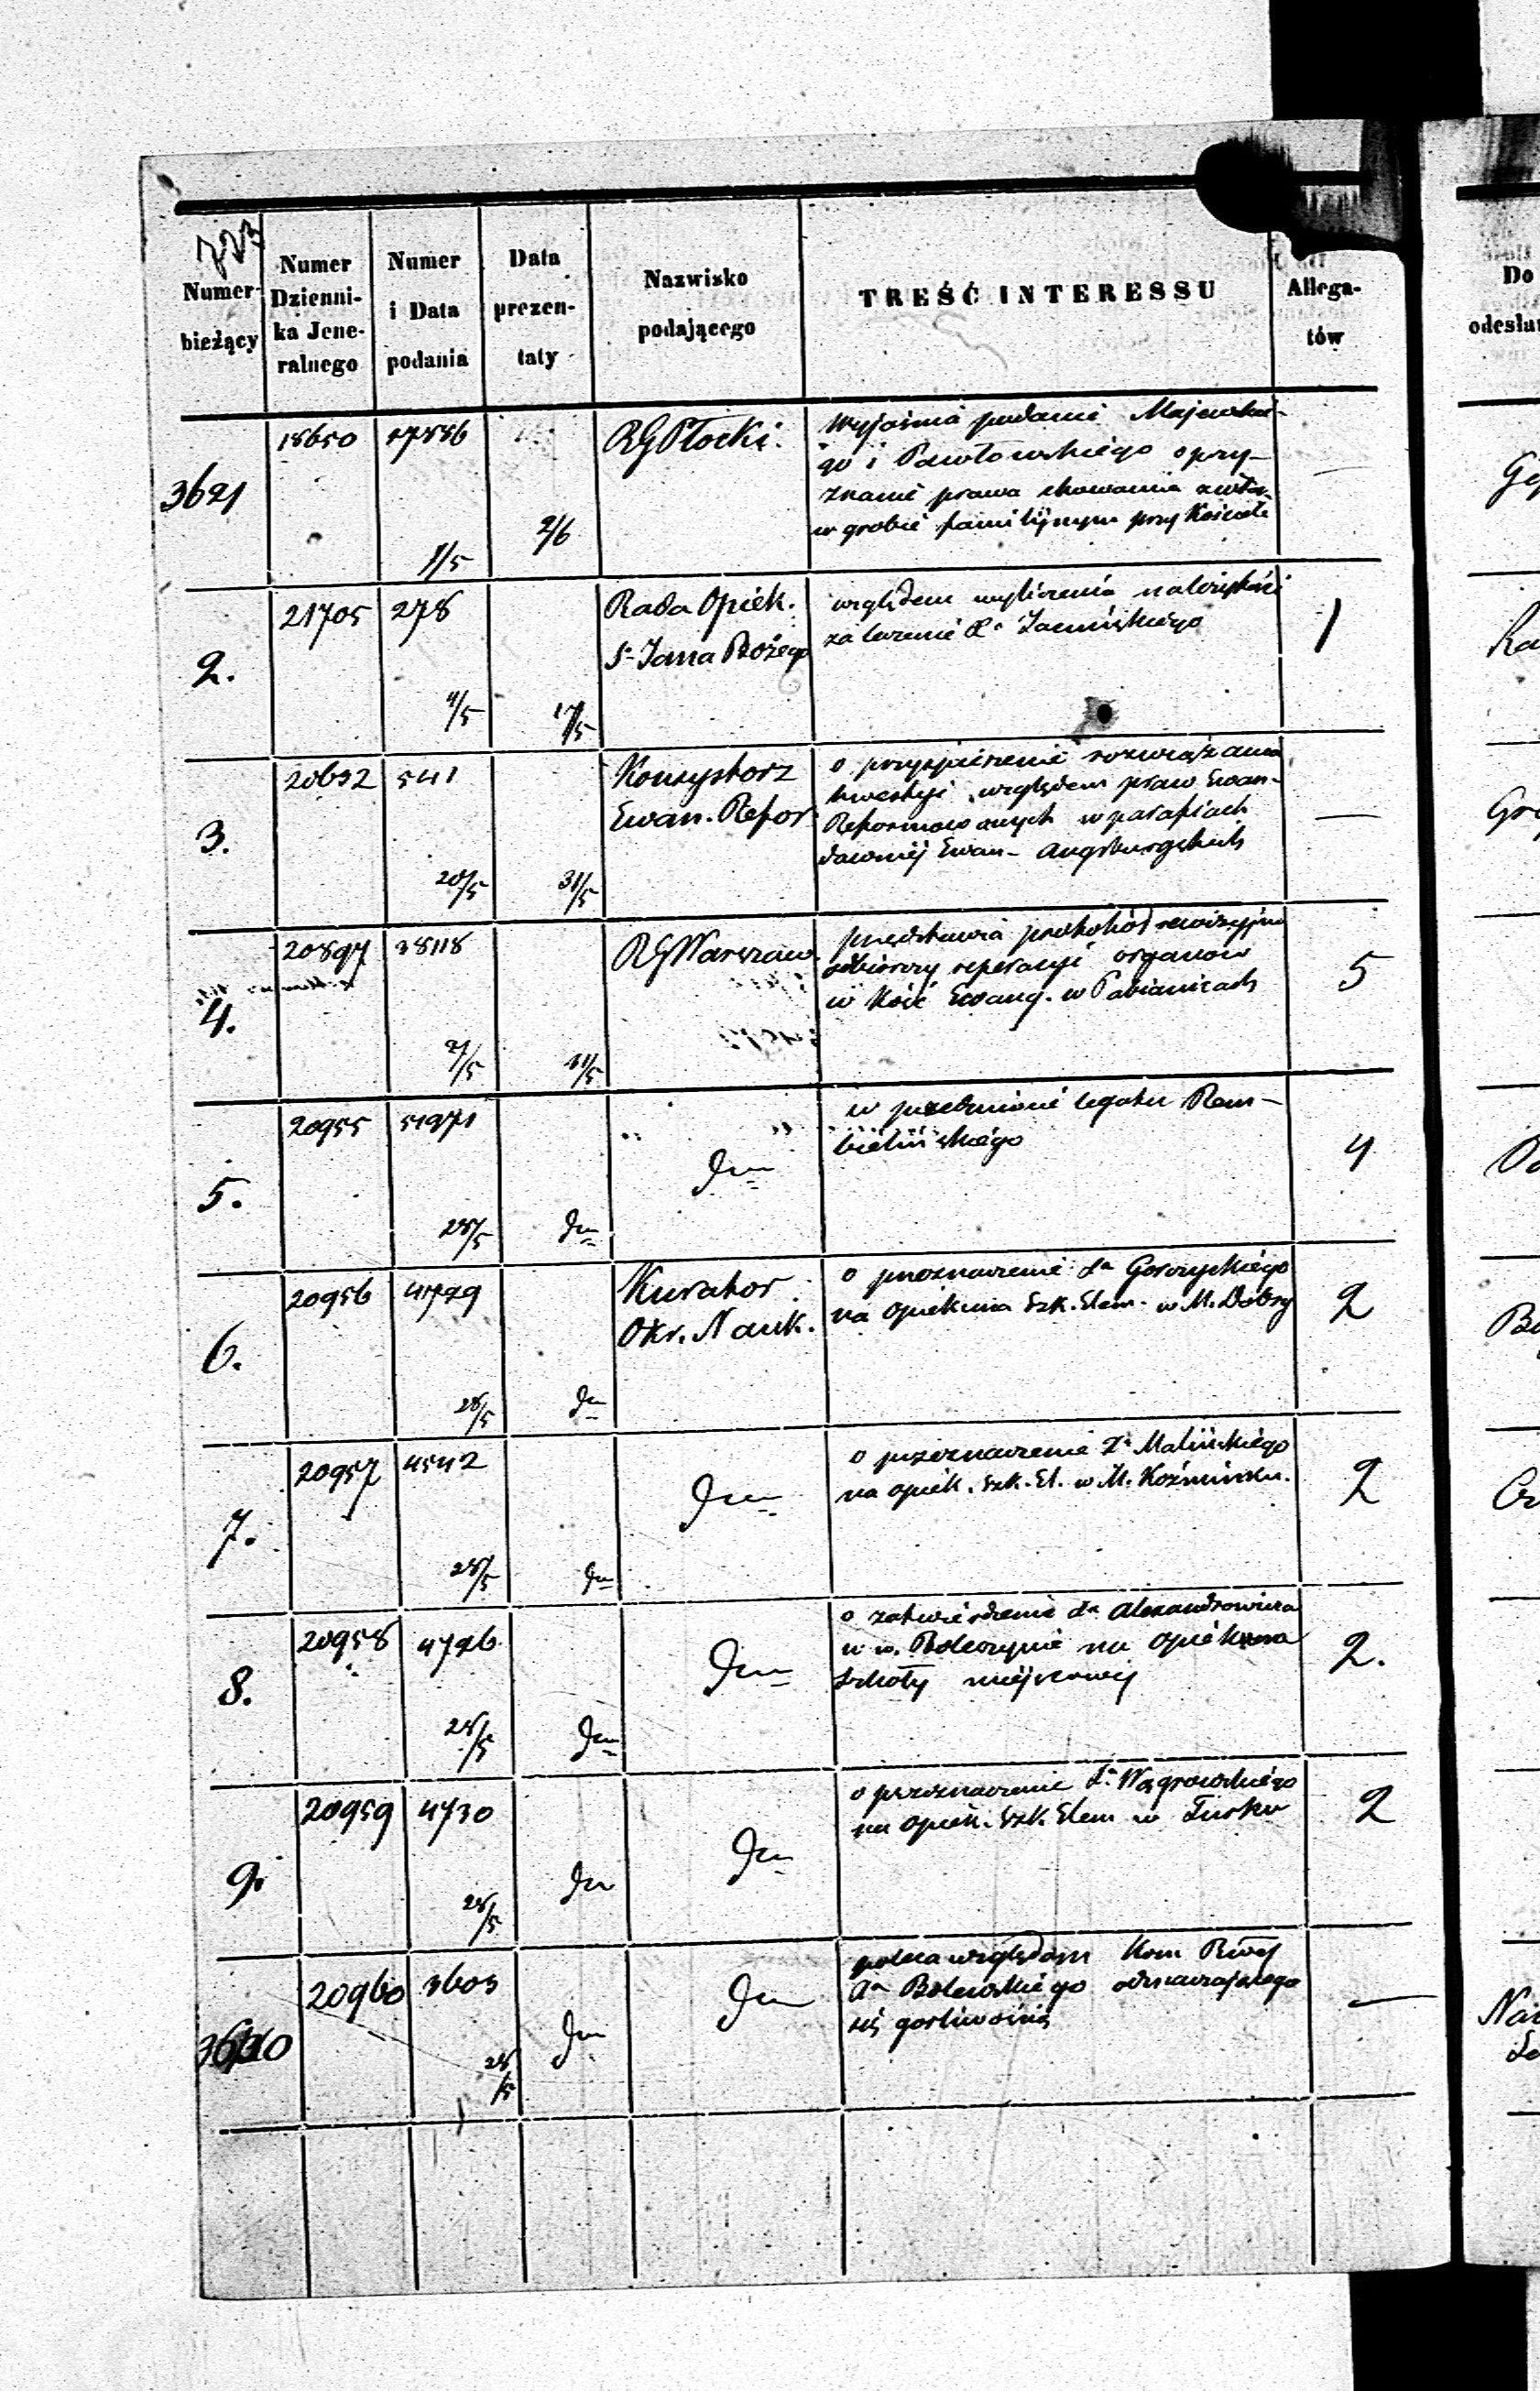 723
Numer bieżący
Numer Dzienni- ka Jene- ralnego
Numer i Data podania
Data prezen- taty
Nazwisko podającego
TREŚĆ INTERESSU
Allega- tów
Do
odesłan
3621
18650
17556
1/5
2/6
RG Płocki.
Wyjaśnia podanie Majewskie-
go i Pawłowskiego o przy-
znanie prawa chowania zwłok
w grobie familijnym przy Kościele
—
2.
21705
278
4/5
17/5
Rada Opiek.
Sº Jana Bożego
względem wyliczenia należytości
za leczenie
1
Ra
3.
20632
541
20/5
31/5
Konsystorz
Ewan. Refor.
o przyspieszenie rozwiązania
kwestyi względem praw Ewan-
Reformowanych w parafiach
dawniej Ewan- Augsburgskich
—
4.
20897
38118
31/5
RG Warszaw.
przedstawia protokół rewizyjno
odbiorczy reperacyi organów
w Kość Ewang. w Pabianicach
5
5.
20955
51971
28/5
dto
dto
w przedmiocie legatu Rem-
bielińskiego
4
6.
20956
4779
28/5
dto
Kurator
Okr. Nauk.
o przeznaczenie Gorczyckiego
na opiekuna Szk. Elem. w M. Dobry
2
7.
20957
4542
28/5
dto
dto
o przeznaczenie Malińskiego
na opiek. Szk. El. w M. Koźminku.
2
8.
20958
4726
28/5
dto
dto
o zatwierdzenie Alexandrowicza
na opiekuna
szkoły miejscowej
2.
9.
20959
4730
28/5
dto
dto
o przeznaczenie Wągrowskiego
na opiek. Szk. Elem w Turku
2
3630
20960
3603
28/5
dto
dto
poleca względom Kom Rząd
Bolewskiego odznaczającego
się gorliwością
—